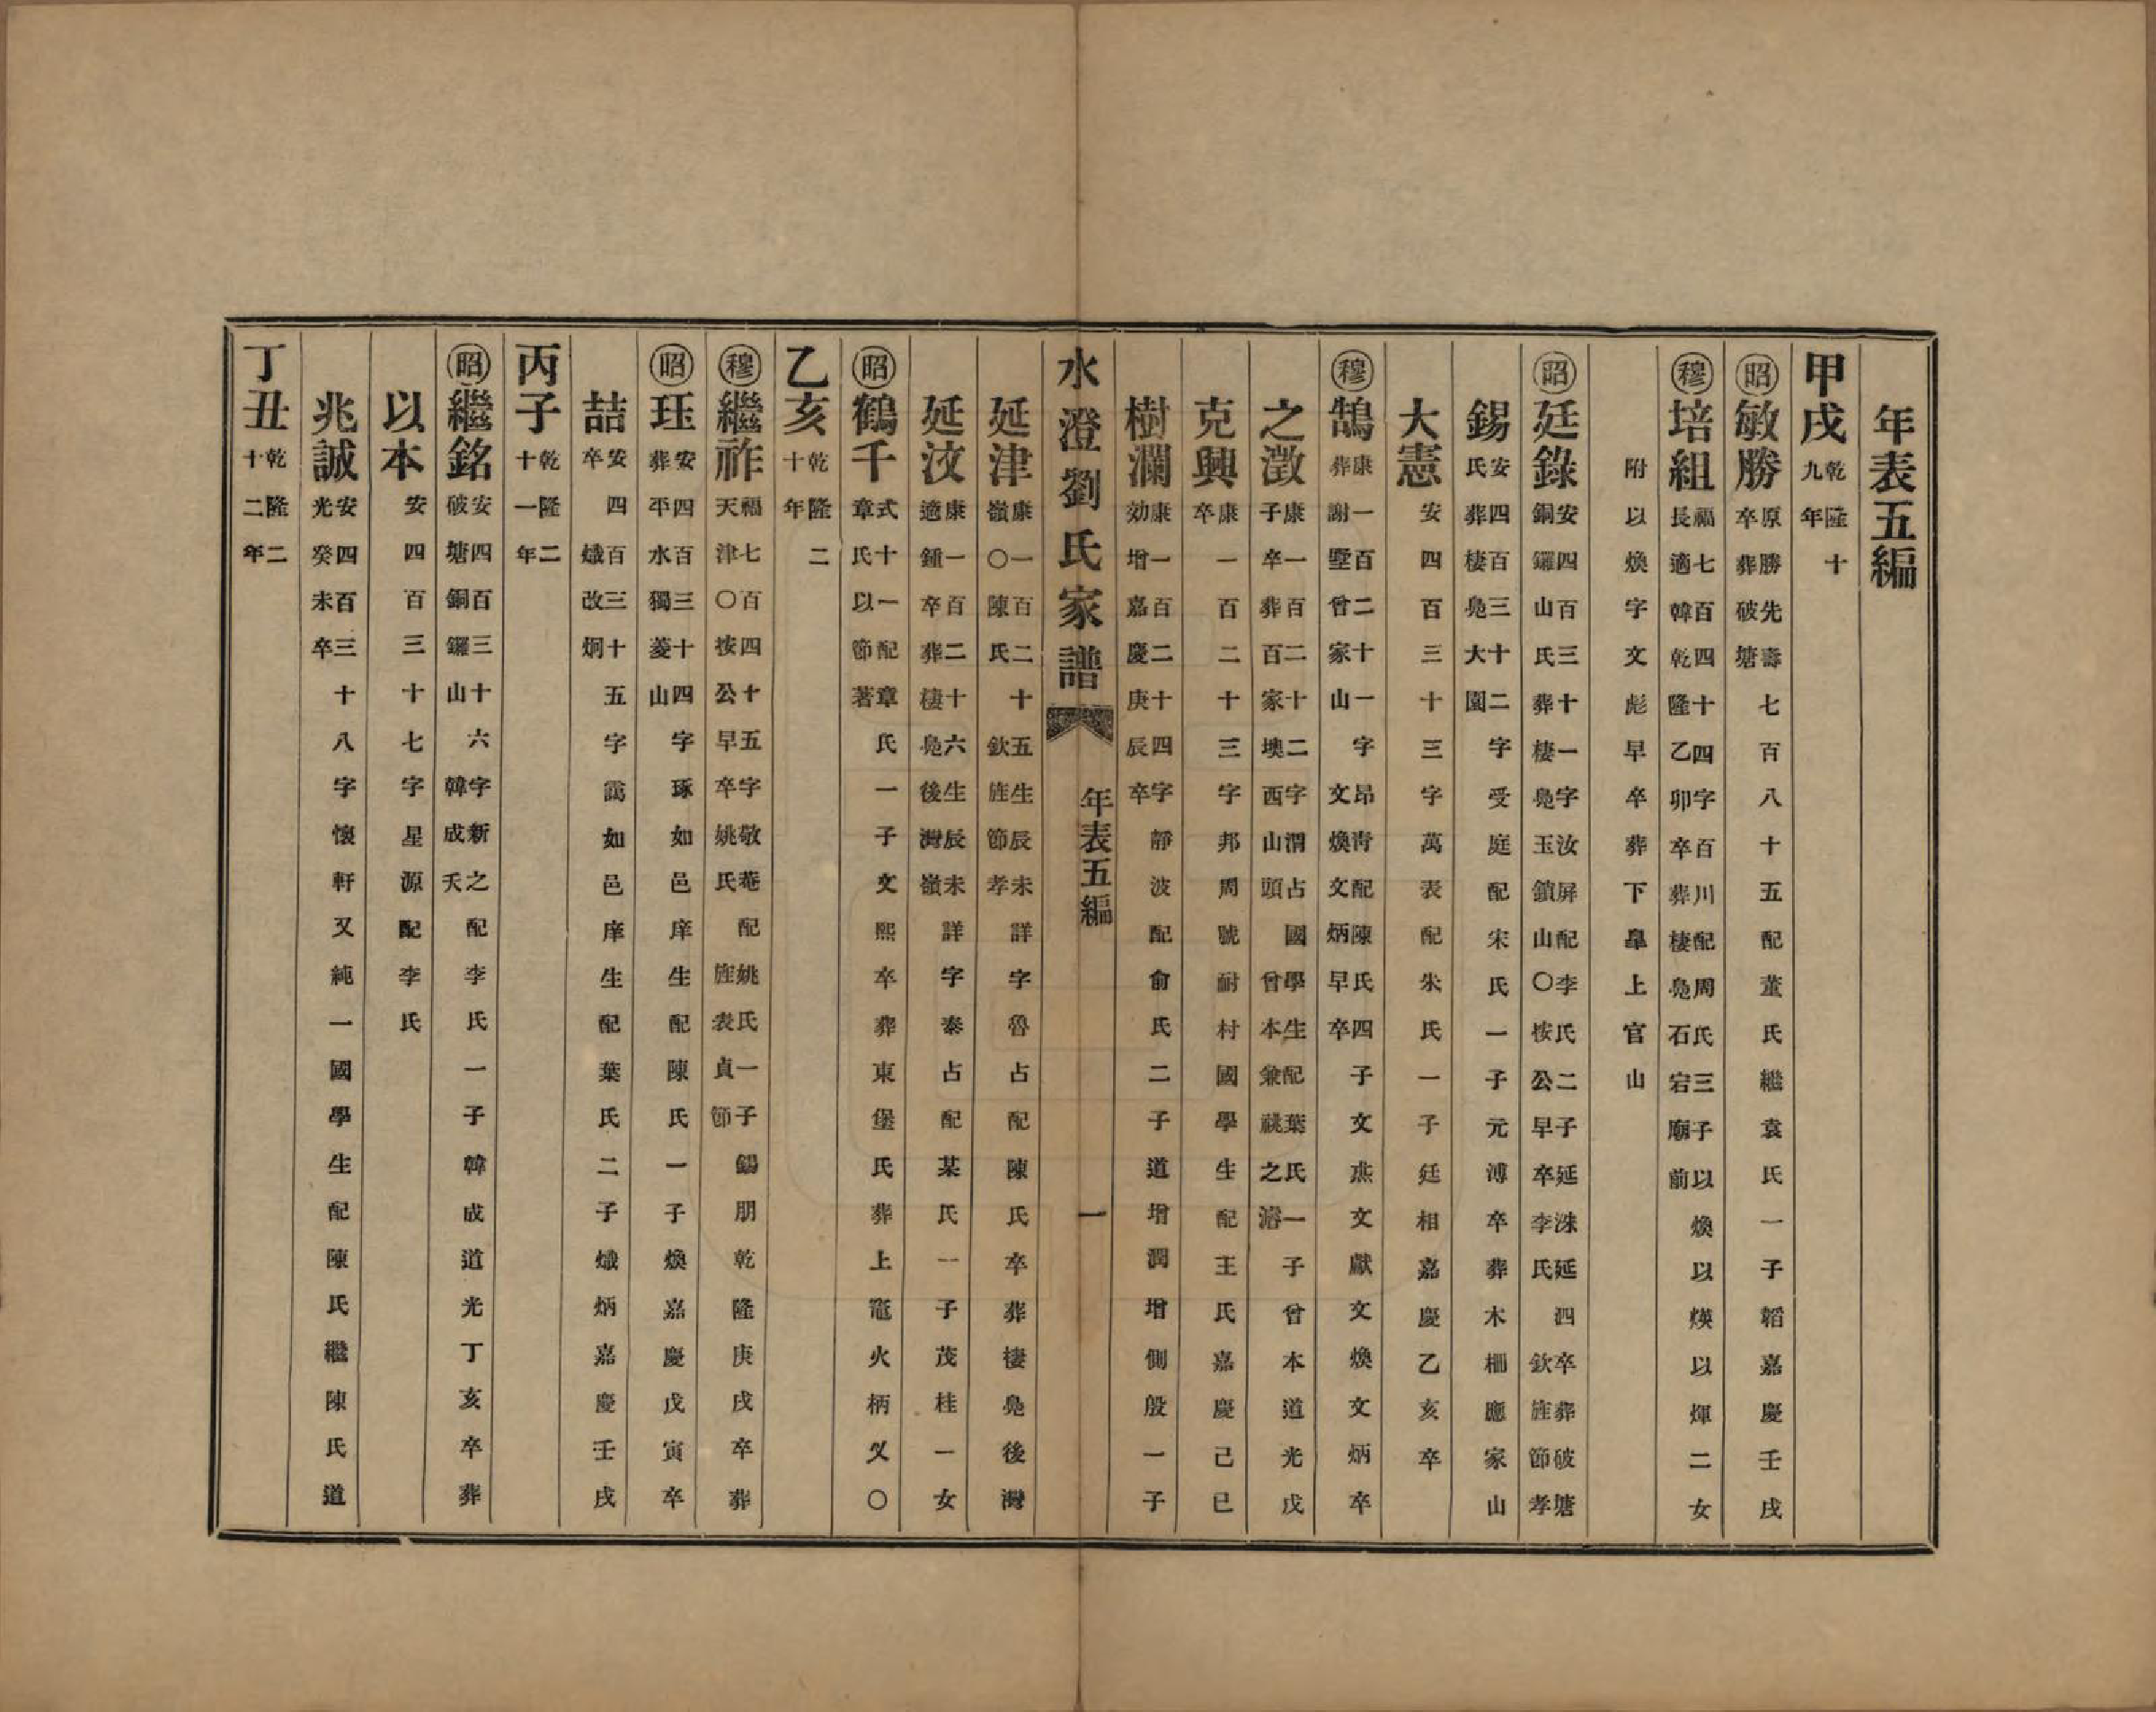 年表五編
甲戌 乾隆十九年
㊊昭 敏勝 原勝先壽七百八十五配董氏繼袁氏一子韜嘉慶壬戌卒葬破塘
穆 培組 福七百四十四字百川配周氏三子以煥以煐以煇二女長適韓乾隆乙卯卒葬棲鳧石宕廟前
附以煥字文彪早卒葬下臯上官山
昭 廷錄 安四百三十一字汝屏配李氏二子延洙延泗卒葬破塘銅鑼山氏葬棲鳧玉鎮山〇按公早卒李氏欽旌節孝
錫 安四百三十二字受庭配宋氏一子元溥卒葬木柵應家山氏葬棲鳧大園
大憲 安四百三十三字萬表配朱氏一子廷相嘉慶乙亥卒
穆 鵠 康一百二十一字昂青配陳氏四子文燕文獻文煥文炳卒葬謝墅曾家山文煥文炳早卒
之澂 康一百二十二字渭占國學生配葉氏一子曾本道光戊子卒葬百家墺西山頭曾本兼祧之濬
克興 康一百二十三字邦周號耐村國學生配王氏嘉慶己巳卒
樹瀾 康一百二十四字靜波配俞氏二子道增潤增側殷一子効增嘉慶庚辰卒
水澄劉氏家譜 年表五編 一
延津 康一百二十五生辰未詳字魯占配陳氏卒葬棲鳧後灣嶺〇陳氏欽旌節孝
延汶 康一百二十六生辰未詳字泰占配某氏一子茂桂一女適鍾卒葬棲鳧後灣嶺
昭 鶴千 式十一配章氏一子文熙卒葬東堡氏葬上竈火柄㕛〇章氏以節著
乙亥 乾隆二十年
穆 繼祚 福七百四十五字敬菴配姚氏一子錫朋乾隆庚戌卒葬天津〇按公早卒姚氏旌表貞節
昭 珏 安四百三十四字琢如邑庠生配陳氏一子煥嘉慶戊寅卒葬平水獨菱山
喆 安四百三十五字藹如邑庠生配葉氏二子熾炳嘉慶壬戌卒熾改炯
丙子 乾隆二十一年
昭 繼銘 安四百三十六字新之配李氏一子韓成道光丁亥卒葬破塘銅鑼山韓成夭
以本 安四百三十七字星源配李氏
兆誠 安四百三十八字懷軒又純一國學生配陳氏繼陳氏道光癸未卒
丁丑 乾隆二十二年